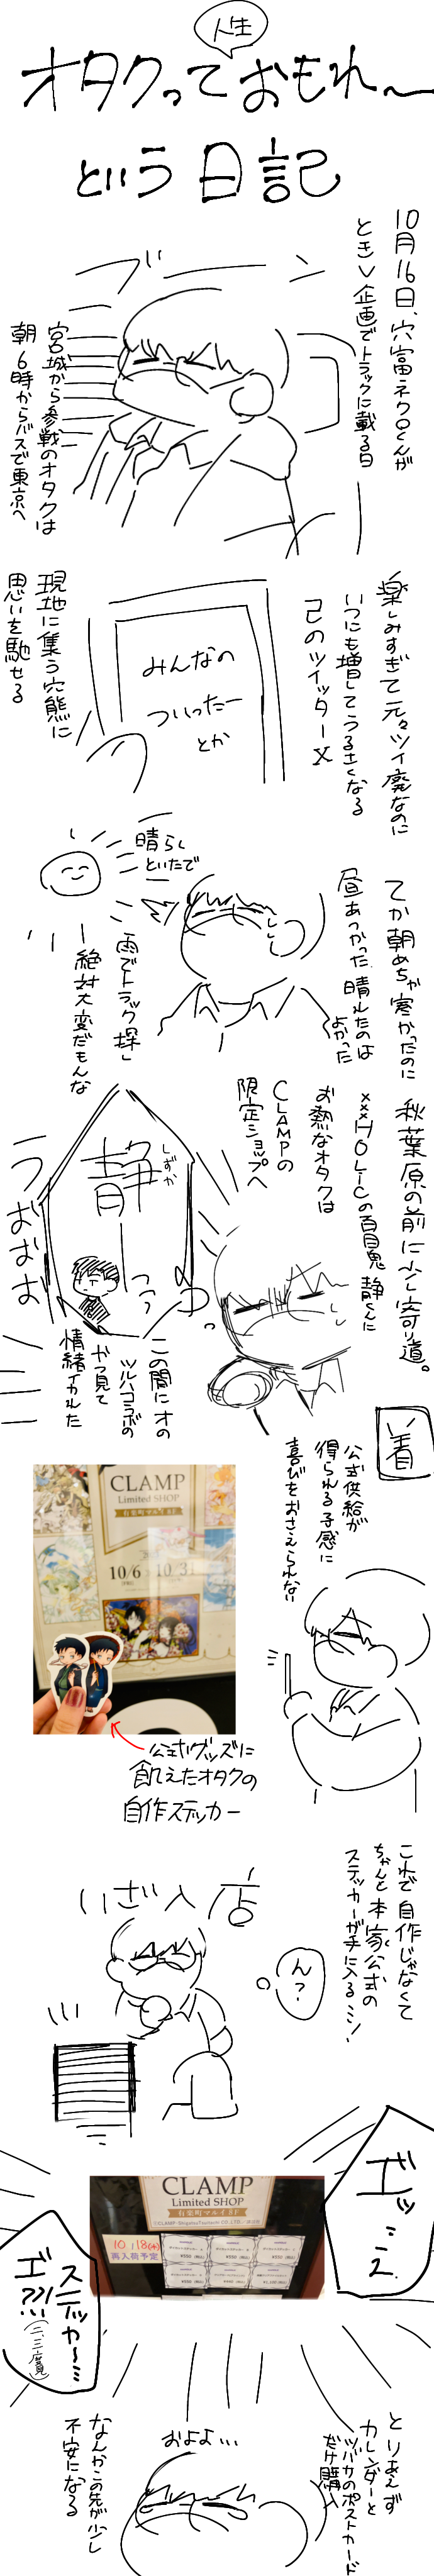 人生
オタクっておもれ〜
という日記
10月16日、穴富ネクロくんが
ときV企画でトラックに載る日
ブーン
宮城から参戦のオタクは
朝6時からバスで東京へ
楽しみすぎて元々ツイ廃なのに
いつにも増してうるさくなる
己のツイッターX
みんなの
ついったー
とか
現地に集う穴熊に
思いを馳せる
てか朝めちゃ寒かったのに
昼あつかった、晴れたのは
よかった
晴らし
といたで
雨でトラック探し
絶対大変だもんな
秋葉原の前に少し寄り道。
×××HOLiCの百目鬼 静くんに
お熱なオタクは
CLAMPの
限定ショップへ
静
しずか
うおおお
この間にオの
ツルハコラボの
やつ見て
情緒イカれた
着
公式供給が
得られる予感に
喜びをおさえられない
CLAMP
Limited SHOP
有楽町マルイ8F
10/6
10/3
公式グッズに
飢えたオタクの
自作ステッカー
これで自作じゃなくて
ちゃんと本家公式の
ステッカーが手に入るミ!
いざ入店
ん?
エッ…
CLAMP
Limited SHOP
有楽町マルイ8F
10/18(水)
再入荷予定
ステッカー…
エ???!
(二、三度見)
とりあえず
カレンダーと
ツバサのポストカード
だけ購入
およよ…
なんかこの先が少し
不安になる